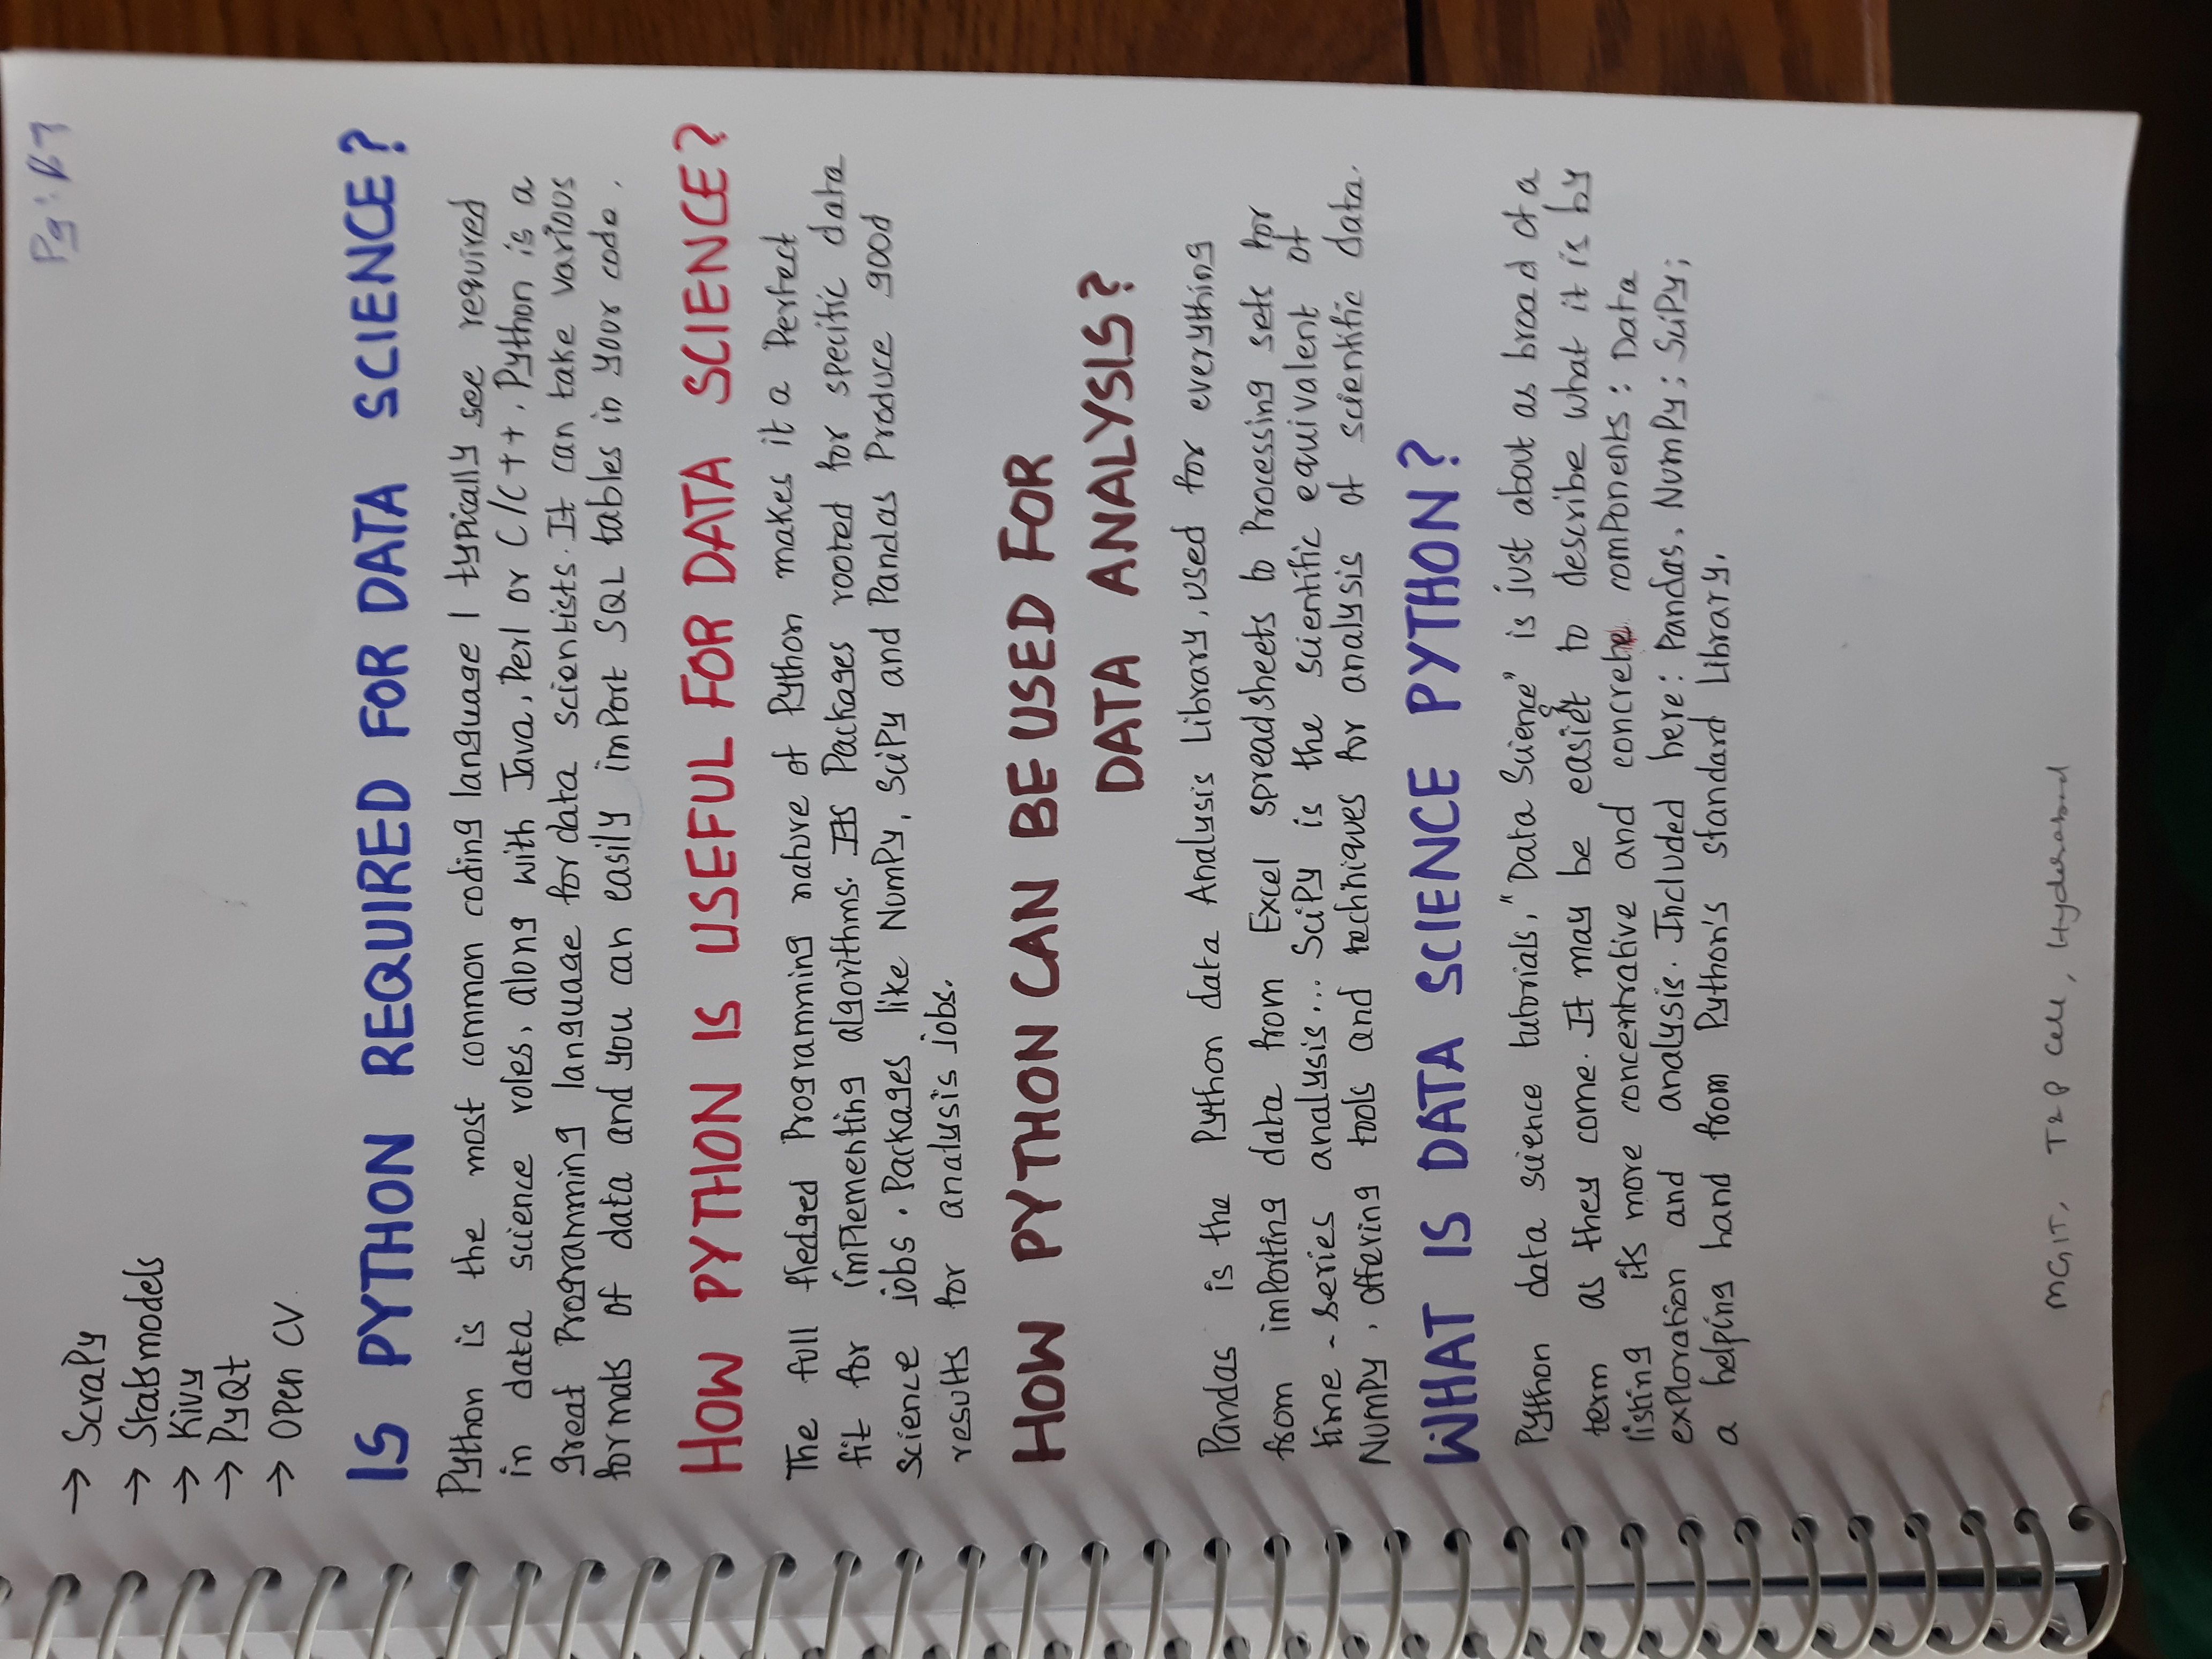 Pg: 67
→ ScraPy
→ Statsmodels
→ Kivy
→ PyQt
→ Open CV.
IS PYTHON REQUIRED FOR DATA SCIENCE?
Python is the most common coding language I typically see required
in data science roles, along with Java, Perl or C/C++. Python is a
great Programming language for data scientists. It can take various
formats of data and you can easily import SQL tables in your code.
HOW PYTHON IS USEFUL FOR DATA SCIENCE?
The full fledged Programming nature of Python makes it a Perfect
fit for implementing algorithms. Its Packages rooted for specific data
science jobs. Packages like NumPy, SciPy and Pandas Produce good
results for analysis jobs.
HOW PYTHON CAN BE USED FOR
DATA ANALYSIS?
Pandas is the Python data Analysis Library, used for everything
from importing data from Excel spreadsheets to Processing sets for
time-series analysis... SciPy is the scientific equivalent of
NumPy, offering tools and techniques for analysis of scientific data.
WHAT IS DATA SCIENCE PYTHON?
Python data science tutorials, "Data Science" is just about as broad of a
term as they come. It may be easiest to describe what it is by
listing its more concentrative and concrete components: Data
exploration and analysis. Included here: Pandas. NumPy; SciPy;
a helping hand from Python's standard Library.
MGIT, T&P Cell, Hyderabad